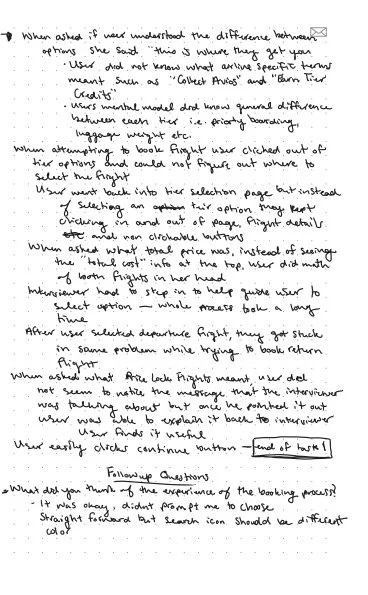 When asked if user understood the difference between
options she said "this is where they get you
• User did not know airline specific terms
meant such as "Collect Avios" and "Earn Tier
Credits"
• Users mental model did know general difference
between each tier i.e. priority boarding,
luggage weight etc.
When attempting to book flight user clicked out of
tier options and could not figure out where to
select the flight
User went back into tier selection page but instead
of selecting an option tier option they kept
clicking in and out of page, flight details
etc and non clickable buttons
When asked what total price was, instead of seeing
the "total cost" info at the top, user did math
of both flights in her head
Interviewer had to step in to help guide user to
select option — whole process took a long
time
After user selected departure flight, they got stuck
in same problem while trying to book return
flight
When asked what Price lock Flights meant, user did
not seem to notice the message that the interviewer
was talking about but once he pointed it out
user was able to explain it back to interviewer
User finds it useful
User easily clicks continue button — end of task 1
Followup Questions
• What did you think of the experience of the booking process?
- It was okay, didnt prompt me to choose
Straight forward but search icon should be different
color